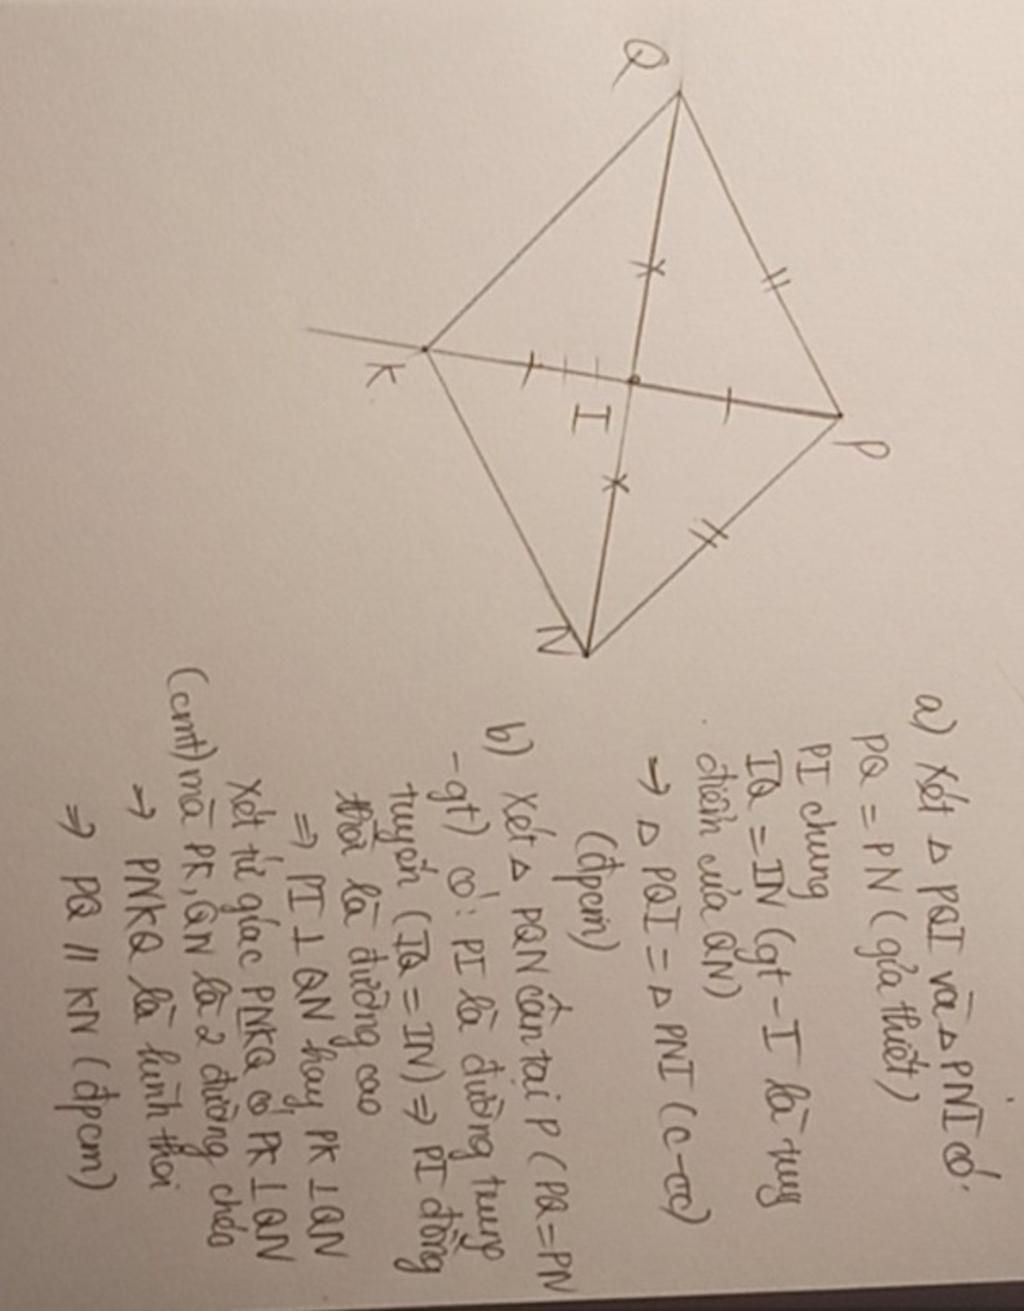 Q
P
I
K
N
a) Xét Δ PQI và Δ PNI có:
PQ = PN (giả thiết)
PI chung
IQ = IN (gt - I là trung
điểm của QN)
→ Δ PQI = Δ PNI (c-cc)
(đpcm)
b) Xét Δ PQN cân tại P (PQ = PN
- gt) có: PI là đường trung
tuyến (IQ = IN) ⇒ PI đồng
thời là đường cao
⇒ PI ⊥ QN hay PK ⊥ QN
Xét tứ giác PNKQ có PK ⊥ QN
(cmt) mà PK, QN là 2 đường chéo
→ PNKQ là hình thoi
⇒ PQ // KN (đpcm)